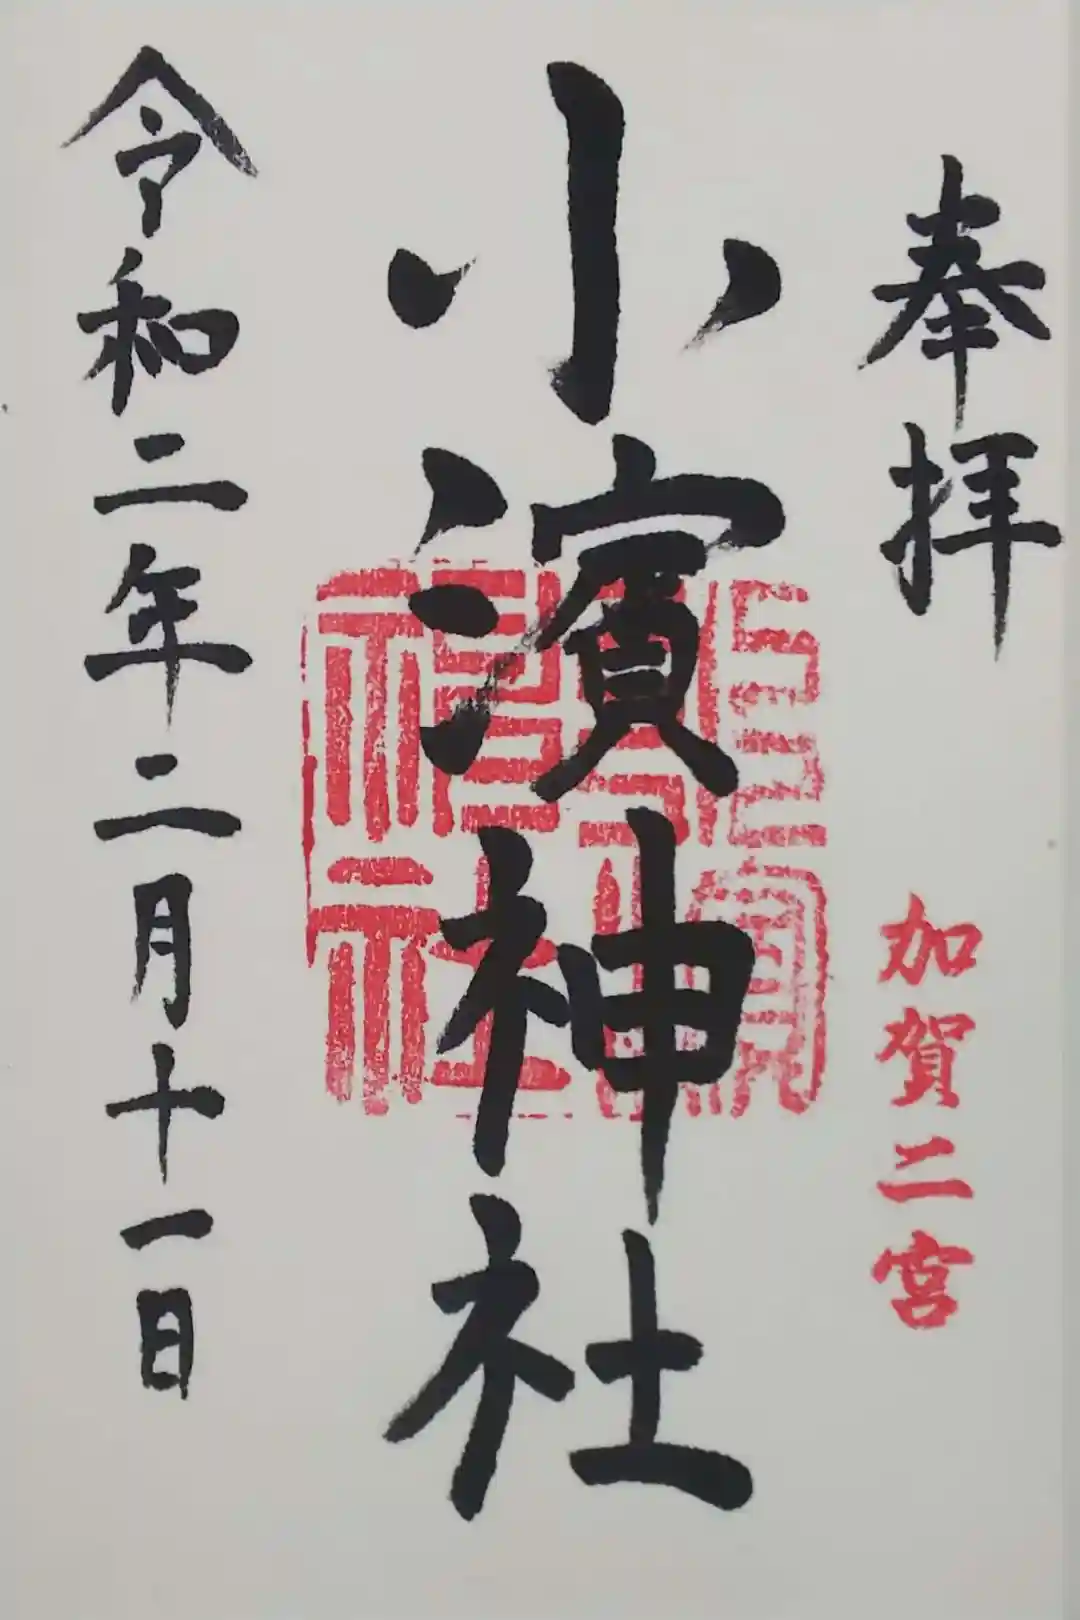 奉拝
加賀二宮
小濱神社
令和二年二月十一日